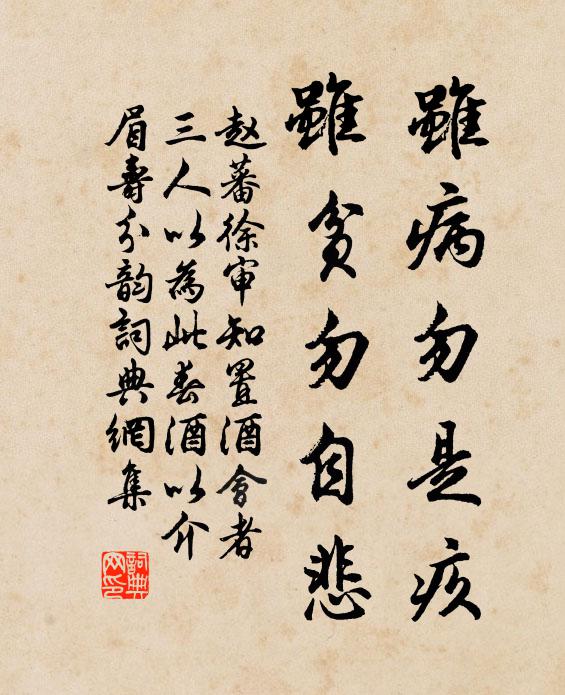 雖病勿是疚
雖貧勿自悲
赵蕃徐审知置酒會者
三人以為此春酒以介
眉壽分韵詞典網集
詞典
网印